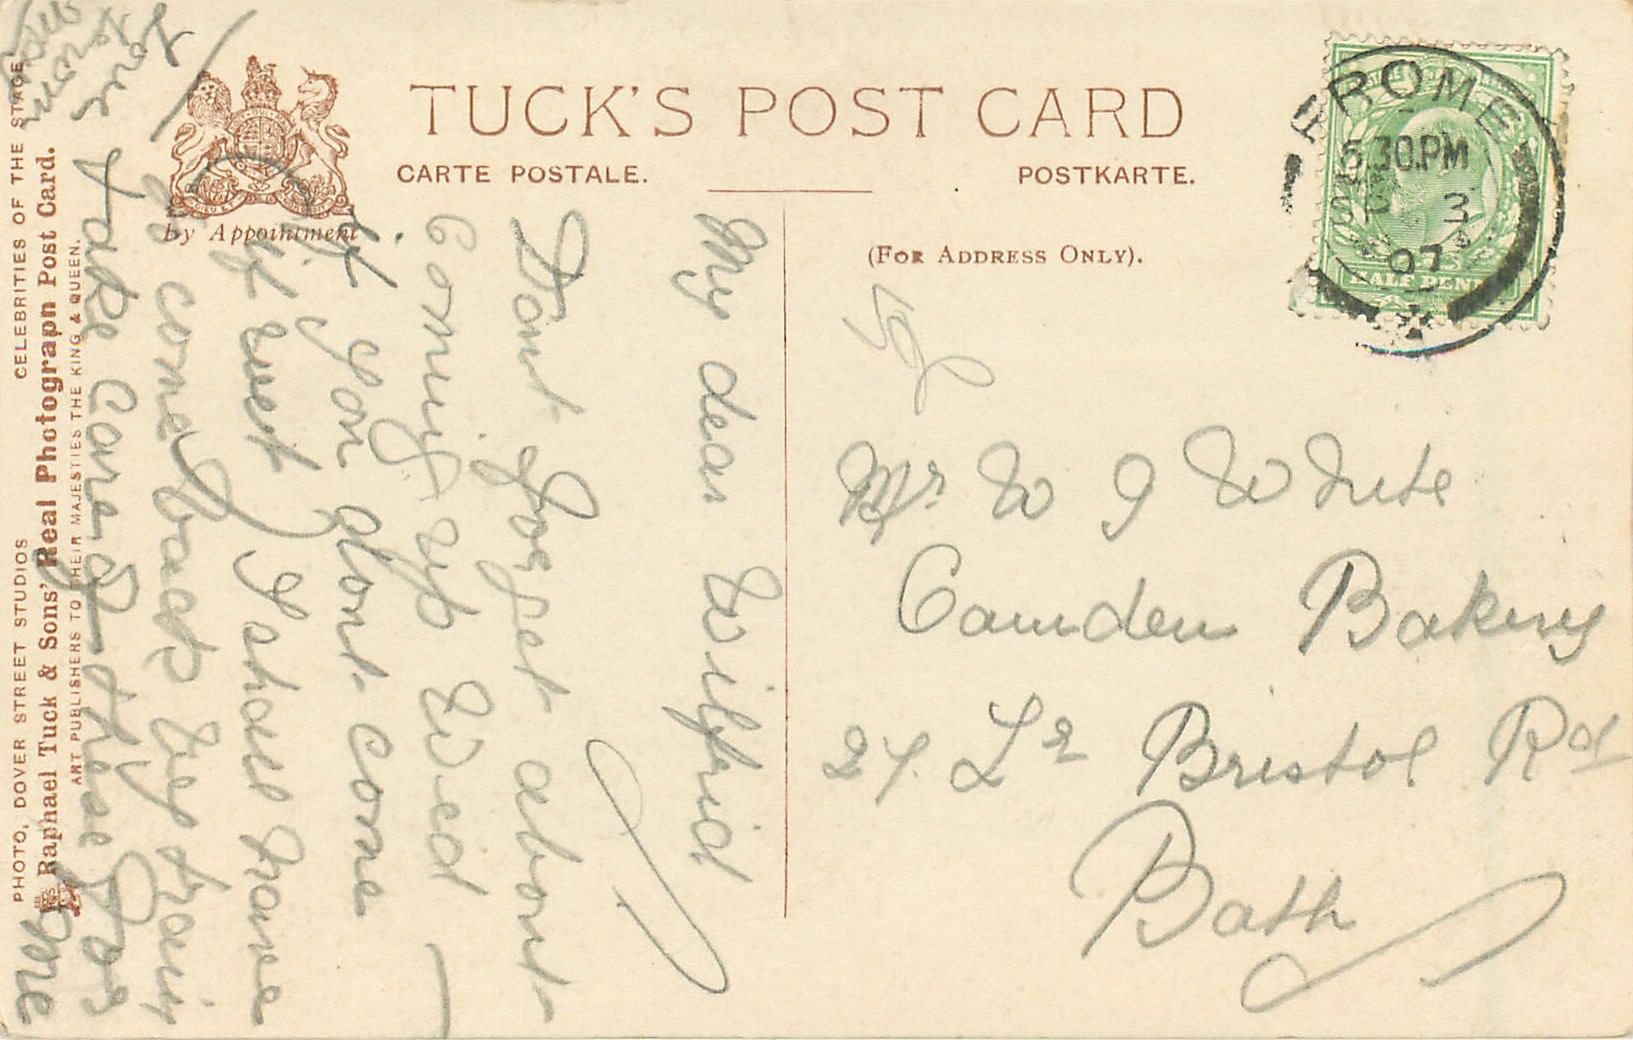 TUCK'S POST CARD
CARTE POSTALE.
POSTKARTE.
by Appointment
(FOR ADDRESS ONLY).
FROME
6.30.PM
3
07
HALF PENNY
Mr W J White
Camden Bakery
27. Lr Bristol Rd
Bath
My dear Wilfrid
Dont forget about
Coming up Wed
If you dont come
if wet I shall have
to come back by train
Take Care of these for
me
Love
from
CELEBRITIES OF THE STAGE.
PHOTO, DOVER STREET STUDIOS
Raphael Tuck & Sons' Real Photograph Post Card.
ART PUBLISHERS TO THEIR MAJESTIES THE KING & QUEEN.